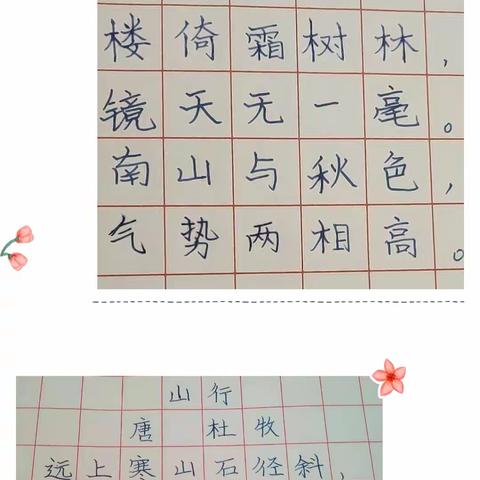 楼倚霜树林，
镜天无一毫。
南山与秋色，
气势两相高。
山行
唐 杜牧
远上寒山石径斜，